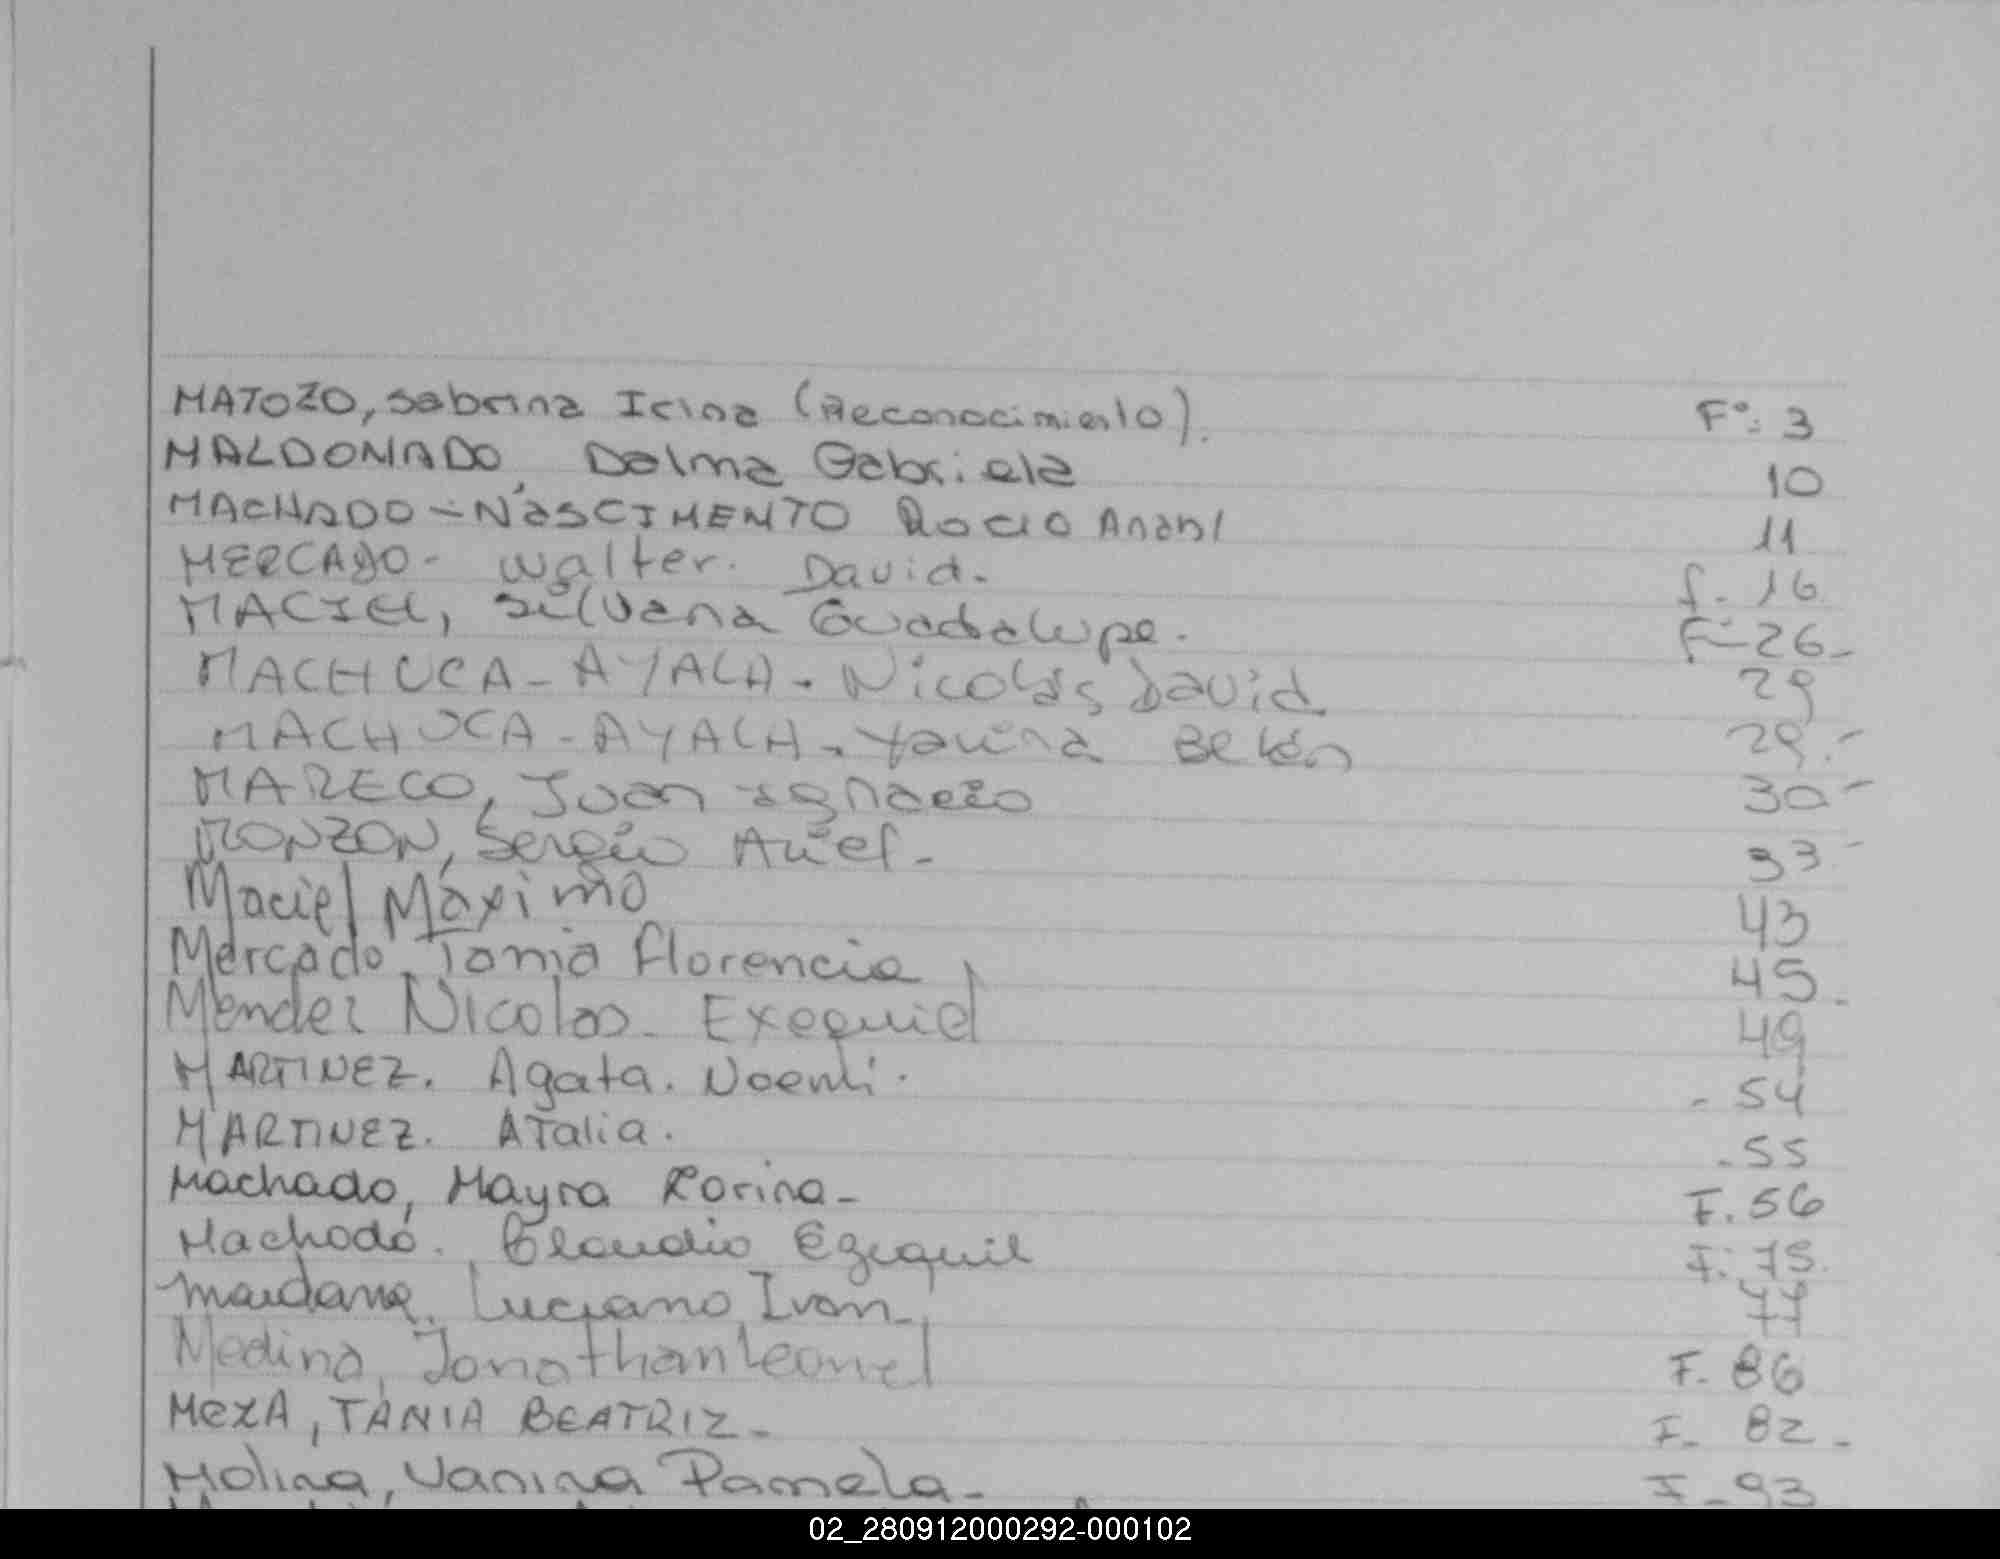 MATOZO, Sabrina Irina (Reconocimiento). F°: 3
MALDONADO, Dalma Gabriela 10
MACHADO - NASCIMENTO Rocio Anahi 11
MERCADO - Walter. David. f. 16
MACIEL, Silvana Guadalupe. F- 26-
MACHUCA - AYALA - Nicolás David 29
MACHUCA - AYALA - Yanina Belén 29.-
MARECO, Juan Ignacio 30-
MONZON, Sergio Ariel - 33-
Maciel Máximo 43
Mercado, Tania Florencia 45.
Mendez Nicolas Exequiel 49
MARTINEZ. Agata. Noemli. - 54
MARTINEZ. ATalia. .55
Machado, Mayra Korina - F. 56
Machado. Claudio Ezequiel F. 75.
Maidana, Luciano Ivan 77
Medina, Jonathan Leonel F. 86
MEZA, TANIA BEATRIZ - F. 82 -
Molina, Vanina Pamela - F - 93
02_280912000292-000102